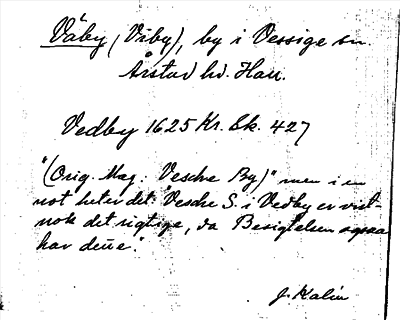 Våby (Viby), by i Vessige sn.
Årstad hd. Hall.
Vedby 1625 Kr. Sk. 427
"(Orig. Mag: Vesche By)" men i en
not heter det "Vesche S. i Vedby er vist-
nok det rigtige, da Besigtelsen ogsaa
har denne".
J. Kalén